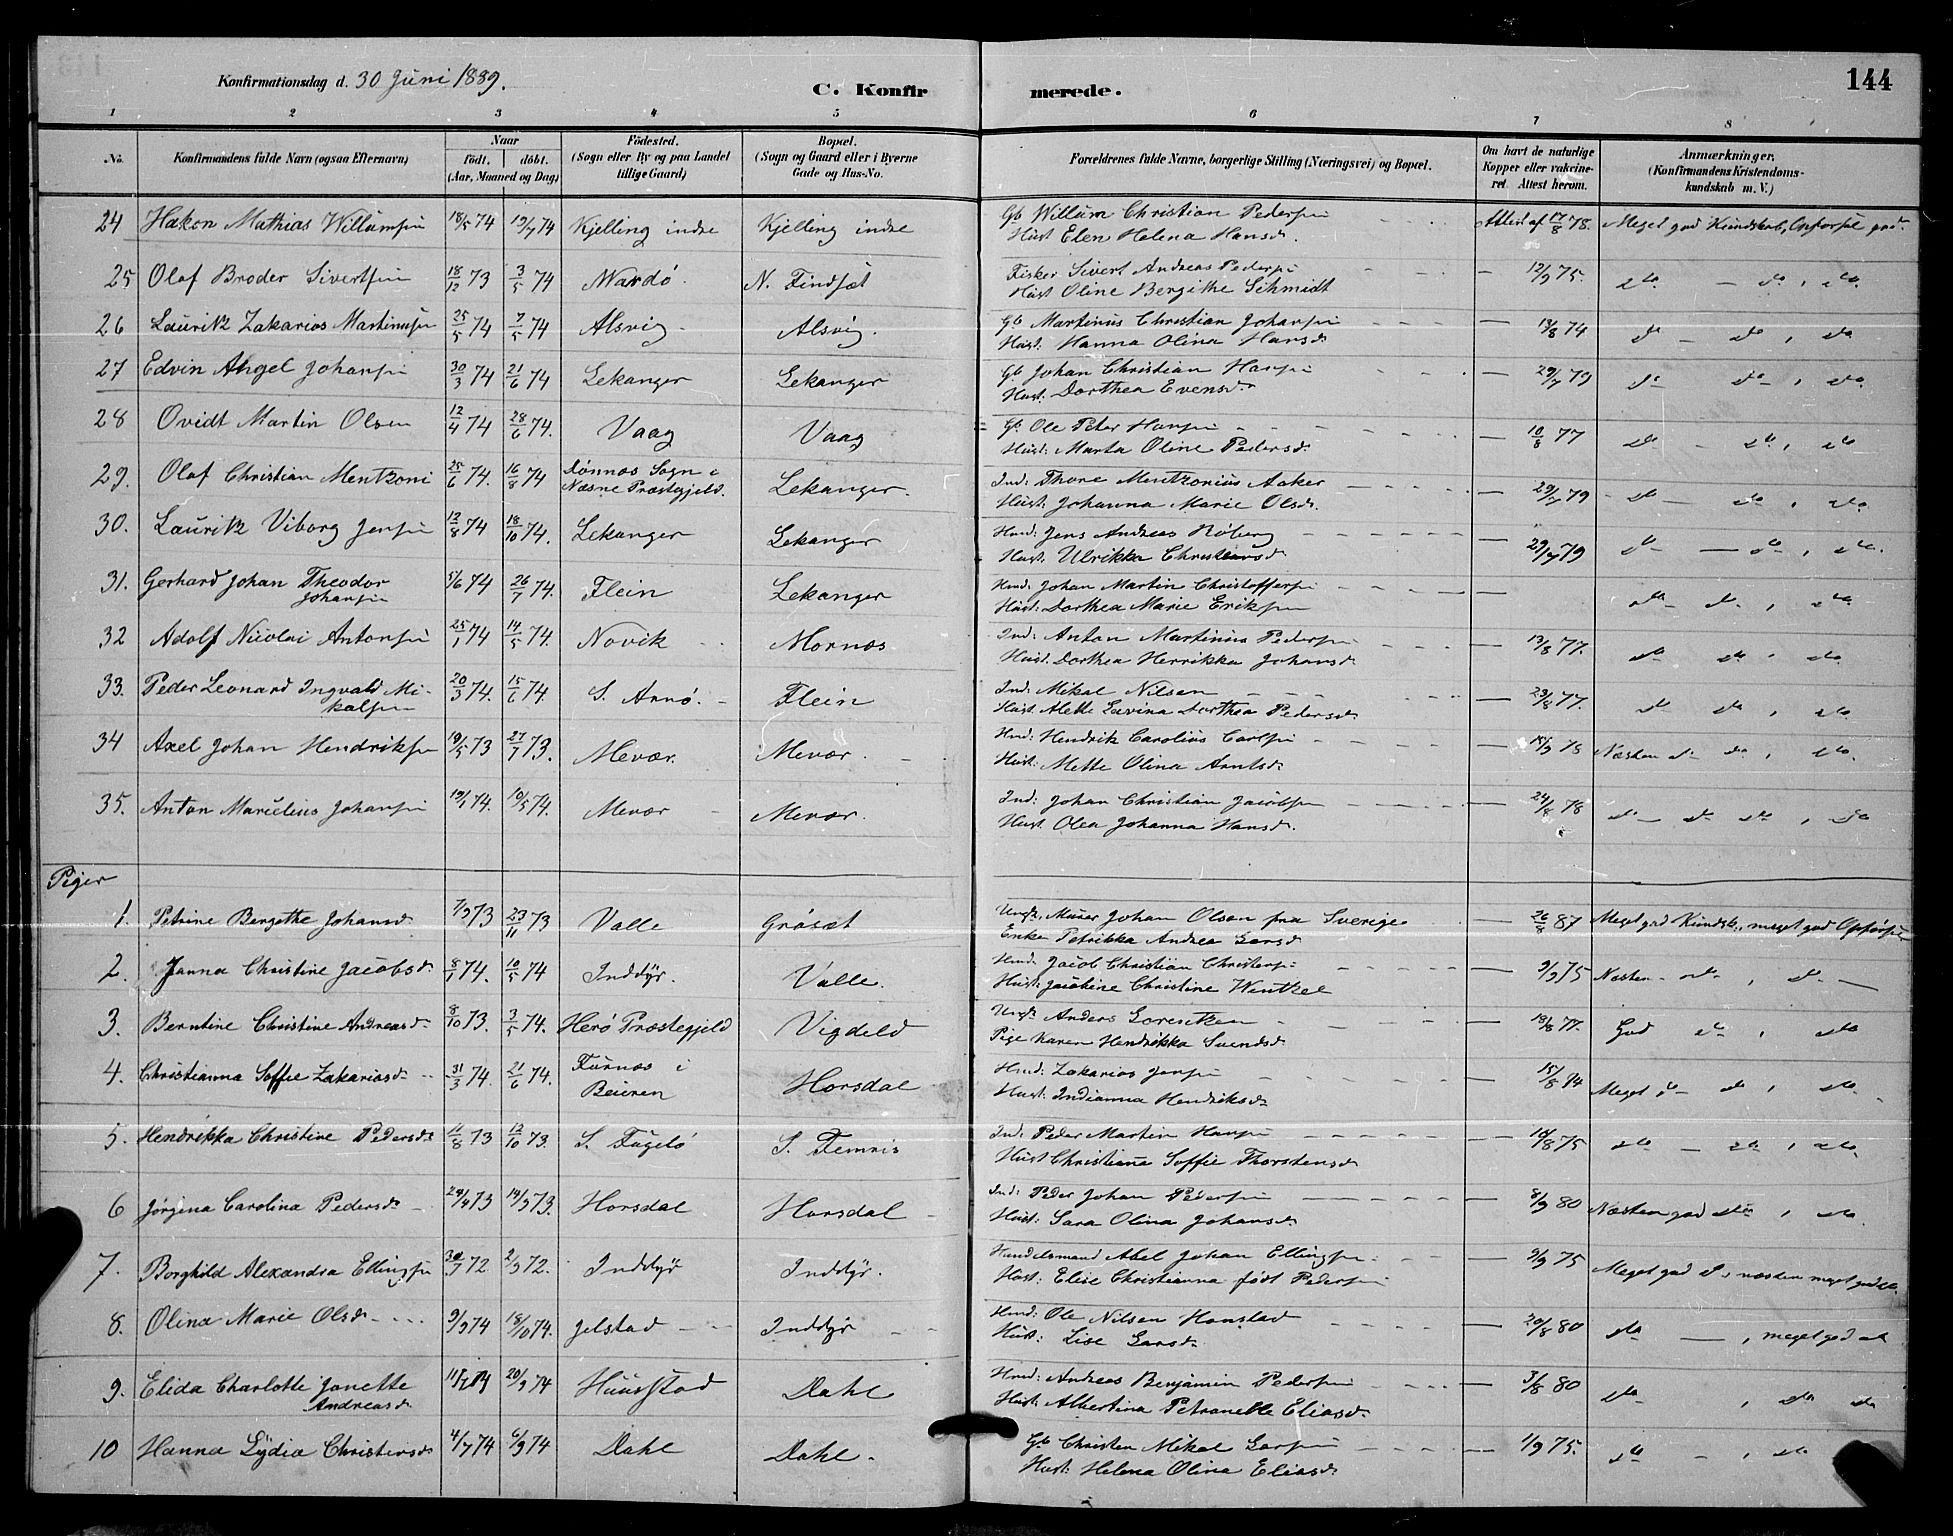 Konfirmationsdag d. 30 Juni 1889.
C. Konfirmerede.
144
1 2 3 4 5 6 7 8
No. Konfirmandens fulde Navn (ogsaa Efternavn) Naar født. døbt. (Aar, Maaned og Dag) Fødested. (Sogn eller By og paa Landet tillige Gaard) Bopæl. (Sogn og Gaard eller i Byerne Gade og Hus-No. Forældrenes fulde Navne, borgerlige Stilling (Næringsvei) og Bopæl. Om havt de naturlige Kopper eller vakcineret. Attest herom. Anmærkninger. (Konfirmandens Kristendomskundskab m. V.)
24 Hakon Mathias Willumsen 18/5 74 19/7 74 Kjelling indre Kjelling indre Gb. Willum Christian Pedersen Attest af 17/8 78. Meget god Kundskab, Opførsel god.
Hust. Elen Helena Hansd.
25 Olaf Broder Sivertsen 18/12 73 3/5 74 Wardø N. Findset Fisker Sivert Andreas Pedersen — 12/9 75. do — do, do
Hust Oline Bergithe Schmidt
26 Lauritz Zakarias Martinusen 25/5 74 7/5 74 Alsvig Alsvig. Gb Martinus Christian Johansen — 19/8 74 do — do, do
Hust. Hanna Olina Hansd.
27 Edvin Angel Johansen 30/3 74 21/6 74 Lekanger Lekanger Gb. Johan Christian Hansen — 29/7 79 do do, do
Hust. Dorthea Evensd.
28 Ovidt Martin Olsen 12/4 74 28/6 74. Vaag Vaag Gb. Ole Peter Hansen — 10/8 77 do — do, do
Hust: Marta Oline Pedersd.
29. Olaf Christian Mentzoni 25/6 74. 16/8 74 Dønnes Sogn i Næsne Præstegjeld. Lekanger. Ind: Thore Mentzonius Aaker — 29/7 79 do — do, do
Hust: Johanna Marie Olsd.
30. Lauritz Viborg Jensen 12/8 74 18/10 74. Lekanger Lekanger Hmd: Jens Andreas Røberg — 29/7 79 do — do, do.
Hust. Ulrikka Christensd.
31. Gerhard Johan Theodor 5/6 74 26/7 74. Flein Lekanger Hmd: Johan Martin Christoffersen — do do, do
Johansen Hust: Dorthea Marie Eriksen
32 Adolf Nicolai Antonsen 25/1 74 14/5 74. Novik Mornes Ind: Anton Martinius Pedersen — 13/8 77. do do, do
Hust. Dorthea Henrikka Johansd.
33. Peder Leonard Ingvald Mi- 20/3 74. 15/6 74. S. Arnø. Flein Ind: Mikal Nilsen — 23/8 77. do do, do
kalsen Hust. Alette Lavina Dorthea Pedersd.
34 Axel Johan Hendriksen 19/5 73 27/7 73. Mevær. Mevær. Hmd: Hendrik Carolius Carlsen 75 Næsten do do, do
Hust: Mette Olina Arntsd.
35. Anton Marcelius Johansen 19/1 74. 10/5 74. Mevær Mevær. Ind: Johan Christian Jacobsen — 24/8 78 do — do do, do
Hust. Olea Johanna Hansd.
Piger
1. Petrine Bergethe Johansd. 7/9 73 23/11 73 Valle Grøset Ungk. Murer Johan Olsen fra Sverige — 26/8 87 Meget god Kundsk., meget god Opførsel
Enke Petrikka Andrea Larsd
2. Janna Christine Jacobsd. 8/1 74. 10/5 74 Inddyr. Valle. Hmd: Jacob Christian Christensen — 9/9 75 Næsten do, do —
Hust: Jacobine Christine Wentzel
3. Berntine Christine Andreasd. 8/10 73. 3/5 74. Herø Præstegjeld Vigdeld Ungk. Anders Lorentzen — 18/8 77. God do, do
Pige Karen Hendrikka Svendsd.
4. Christianna Soffie Zakariasd. 31/3 74. 21/6 74. Furnes i Beiren Horsdal Hmd: Zakarias Jensen — 15/8 74 Meget do — do, do
Hust: Indianna Hendriksd.
5. Hendrikka Christine Pedersd. 11/8 73 12/10 73. S. Fugelø S. Femris Ind: Peder Martin Hansen — 14/8 75 do — do, do
Hust Christiana Soffie Thorstensd.
6 Jørgina Carolina Pedersd. 29/4 73 14/9 73. Horsdal Horsdal Ind: Peder Johan Pedersen — 8/9 80 Næsten god do, do
Hust: Sara Olina Johansd.
7. Borghild Alexandra Ellingsen 30/7 72 2/9 72. Inddyr Inddyr. Handelsmand Abel Johan Ellingsen 9/9 75 Meget god do, næsten meget god do.
Hust: Elise Christianna født Pedersen
8. Olina Marie Olsd. 9/9 74 18/10 74. Jelstad Inddyr Hmd: Ole Nilsen Hanstad — 20/8 80 do —, meget god do
Hust: Lise Larsd.
9. Elida Charlotte Janette 74 20/9 74 Huusstad Dahl Hmd: Andreas Benjamin Pedersen — 3/8 80 do, do do
Andreasd. Hust: Albertina Petranelle Eliasd.
10 Hanna Lydia Christensd. 4/7 74 6/9 74 Dahl Dahl. Gb Christen Mikal Larsen — 1/9 75. do —, do
Hust: Helena Olina Eliasd.